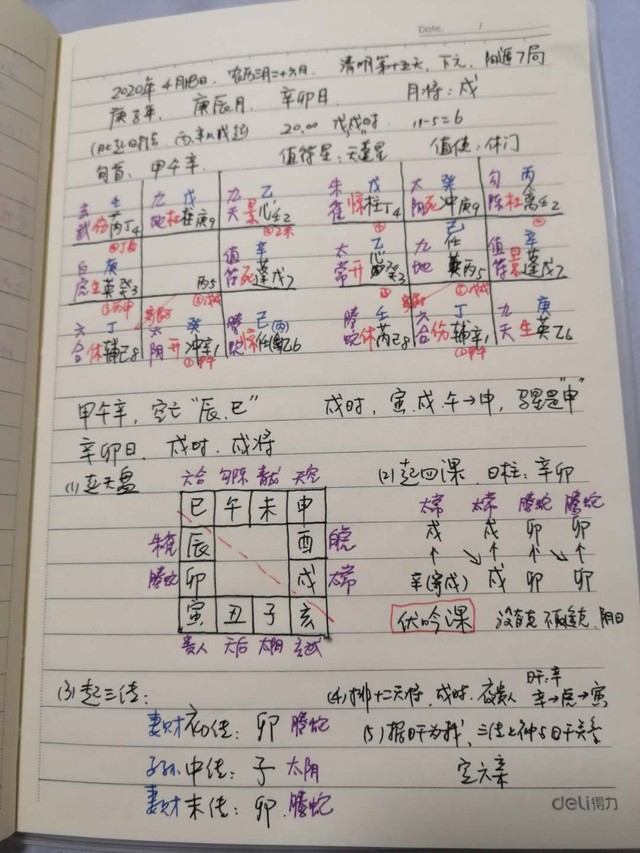 Date. /
2020年4月18日，农历三月二十六日， 清明第十五天，下元，阳遁7局
庚子年， 庚辰月， 辛卯日 月将：戌
20:00 戊戌时 11-5=6
旬首：甲午辛， 值符星：天蓬星 值使：休门
玄 壬 九 戊 九 乙 朱 戊 太 癸 勾 丙
武 伤 芮丁4 地 杜 柱庚9 天 景 心壬2 雀 惊 柱丁4 阴 死 冲庚9 陈 杜 禽壬2
白 庚 值 辛 太 乙 九 己任 值 辛
虎 生 英癸3 丙5 符 死 蓬戊7 常 开 癸3 地 丙5 符 景 蓬戊7
六 丁 太 癸 螣 己(丙) 螣 壬 六 丁 九 庚
合 休 辅己8 阴 开 冲辛1 蛇 惊 任 乙6 蛇 休 芮己8 合 伤 辅辛1 天 生 英乙6
甲午辛，空亡“辰、巳” 戌时，寅.戌.午→申，马星是“申”
辛卯日、 戌时、戌将
(1)起天盘 (2)起四课、日柱：辛卯
六合 勾陈 青龙 天空 太常 太常 螣蛇 螣蛇
巳 午 未 申 戌 戌 卯 卯
朱雀 辰 酉 白虎 ↑ ↘ ↑ ↑ ↘ ↑
螣蛇 卯 戌 太常 辛(寄戌) 戌 卯 卯
寅 丑 子 亥 伏吟课 没有克 不遥克，阴日
贵人 天后 太阴 玄武
(3)起三传： (4)排十二天将，戌时、夜贵人 日干：辛 辛→虎→寅
妻财 初传：卯 螣蛇 (5)据日干为我，三传与日干关系
子孙 中传：子 太阴 定六亲
妻财 末传：卯 螣蛇
deli得力